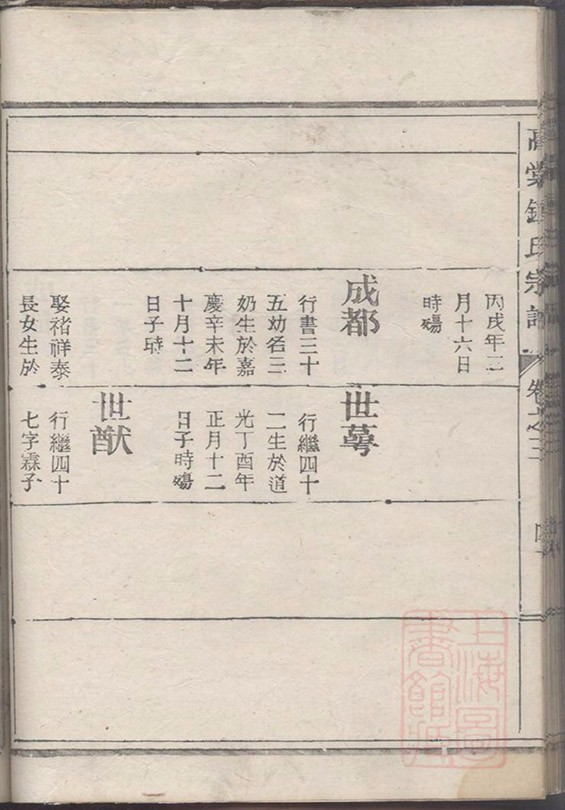 高棠鍾氏宗譜
卷之三
丙戌年三
月十六日
時殤
成都
行書三十
五幼名三
奶生於嘉
慶辛未年
十月十二
日子時
娶褚祥泰
長女生於
世蕚
行繼四十
二生於道
光丁酉年
正月十二
日子時殤
世猷
行繼四十
七字霖子
上海圖書館藏